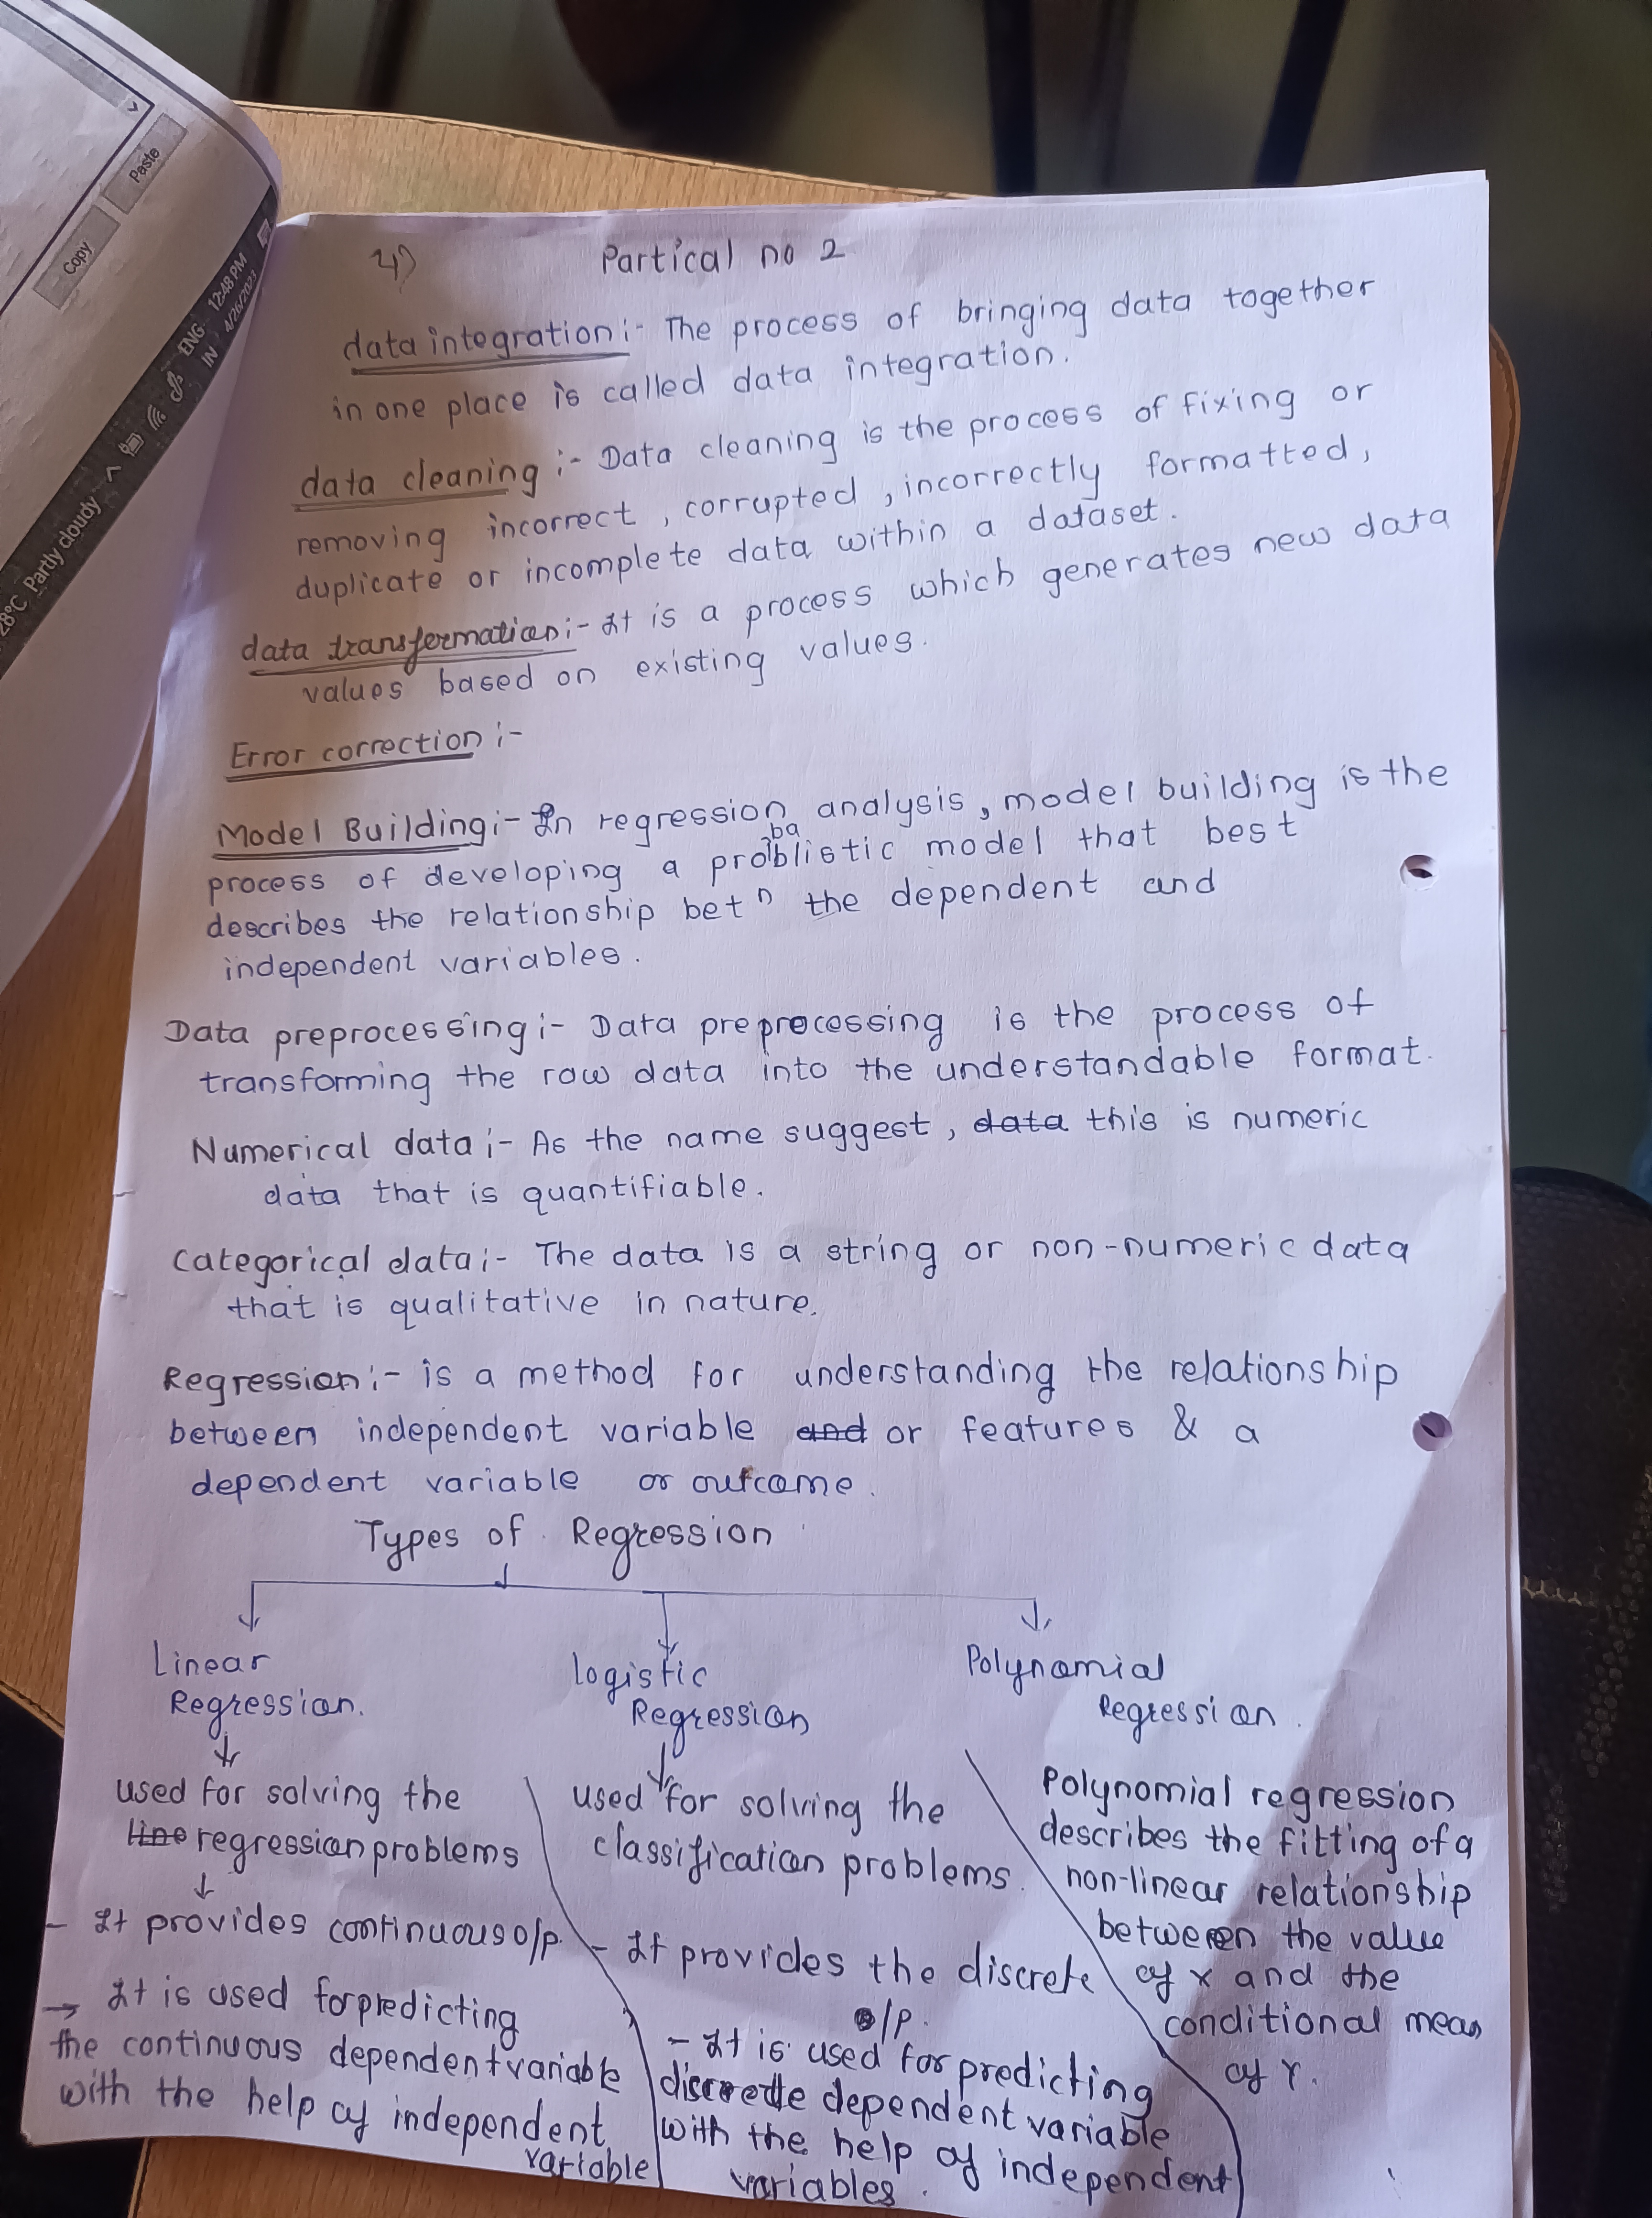 Paste
Copy
ENG 12:48 PM
IN 4/26/2023
28°C Partly cloudy
Partical no 2
data integration :- The process of bringing data together
in one place is called data integration.
data cleaning :- Data cleaning is the process of fixing or
removing incorrect, corrupted, incorrectly formatted,
duplicate or incomplete data within a dataset.
data transformation :- It is a process which generates new data
values based on existing values.
Error correction :-
Model Building :- In regression analysis, model building is the
process of developing a probablistic model that best
describes the relationship betn the dependent and
independent variables.
Data preprocessing :- Data preprocessing is the process of
transforming the row data into the understandable format.
Numerical data :- As the name suggest, data this is numeric
data that is quantifiable.
Categorical data :- The data is a string or non-numeric data
that is qualitative in nature.
Regression :- is a method for understanding the relationship
between independent variable and or features & a
dependent variable or outcome.
Types of Regression
Linear
Regression.
used for solving the
line regression problems
- It provides continuous o/p.
→ It is used for predicting
the continuous dependent variable
with the help of independent
variable
logistic
Regression
used for solving the
classification problems.
- It provides the discrete
o/p.
- It is used for predicting
discrete dependent variable
with the help of independent
variables.
Polynomial
Regression.
Polynomial regression
describes the fitting of a
non-linear relationship
between the value
of x and the
conditional mean
of Y.